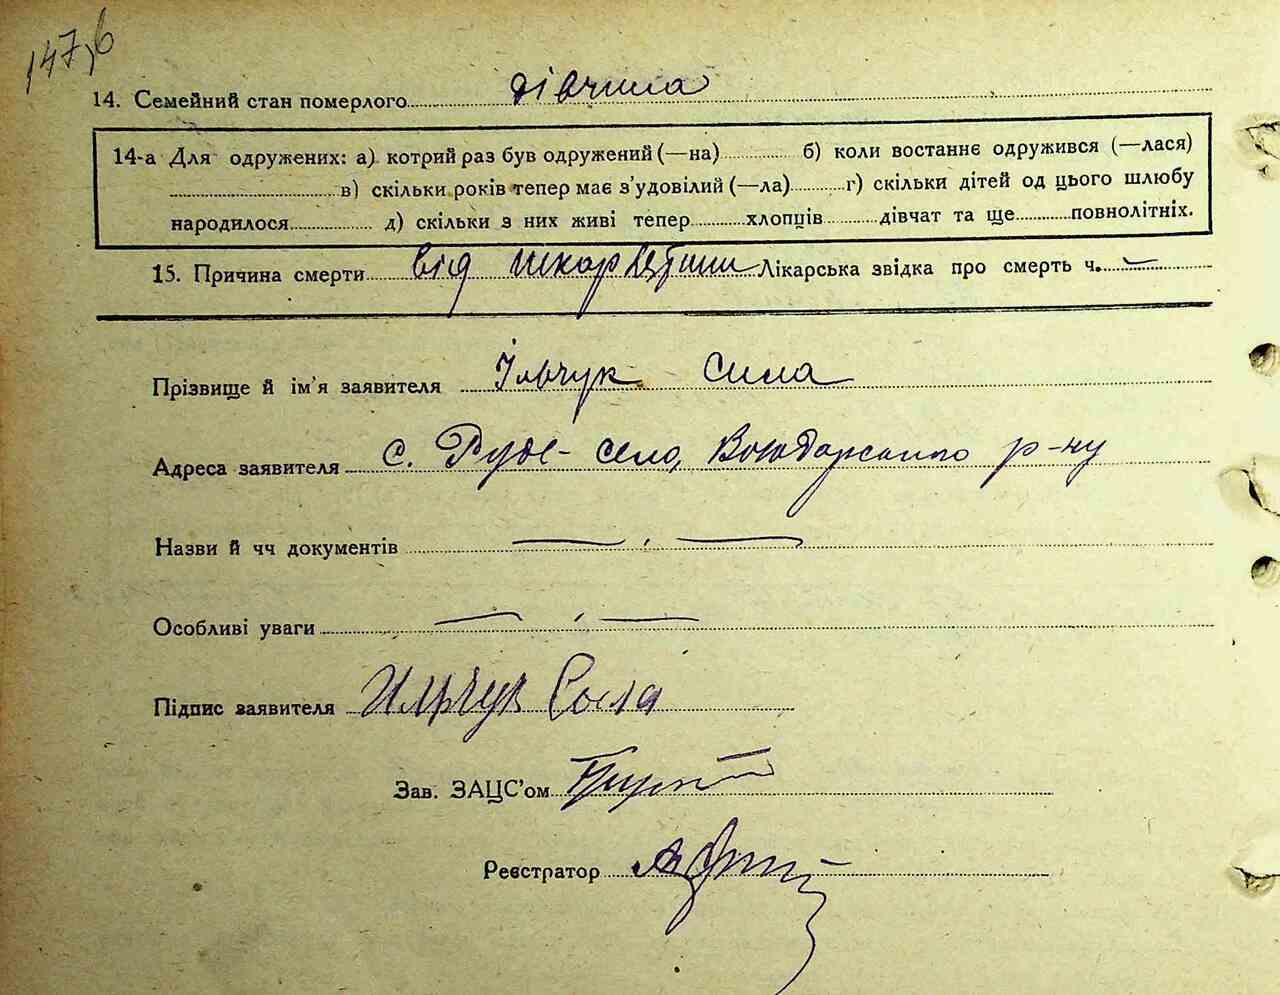 147,б
14. Семейний стан померлого дівчина
14-а Для одружених: а) котрий раз був одружений (—на) б) коли востаннє одружився (—лася)
в) скільки років тепер має з'удовілий (—ла) г) скільки дітей од цього шлюбу
народилося д) скільки з них живі тепер хлопців дівчат та ще повнолітніх.
15. Причина смерти від шкарлятини Лікарська звідка про смерть ч. —
Прізвище й ім'я заявителя Ільчук Сила
Адреса заявителя с. Руде-село, Володарського р-ну
Назви й чч документів
Особливі уваги
Підпис заявителя Ильчук Сила
Зав. ЗАЦС'ом
Реєстратор